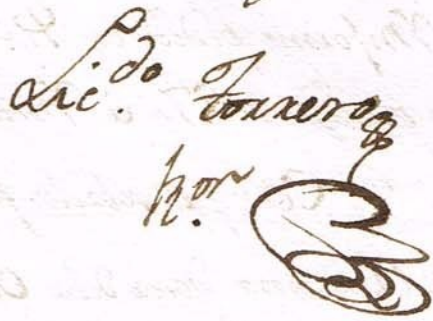 Lic.do Torrero
hor.